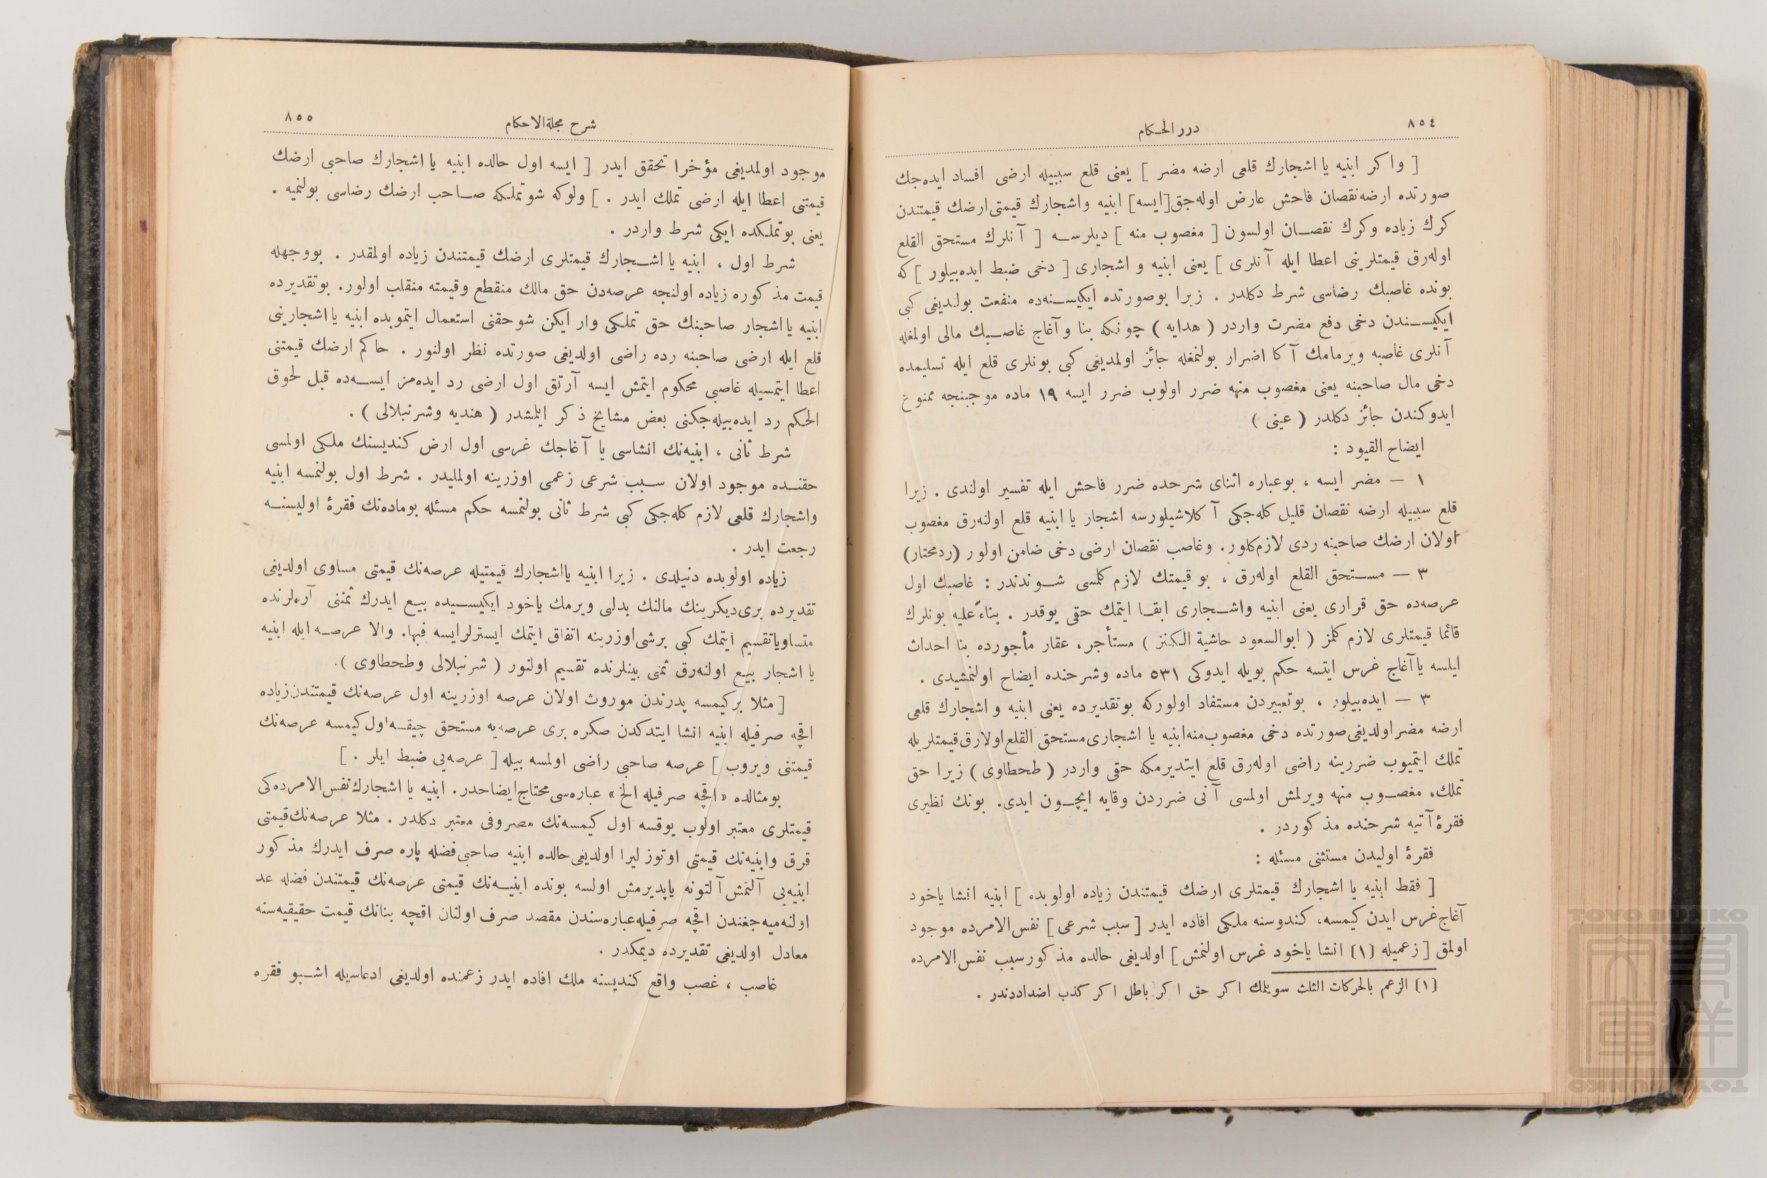 ٨٥٤
درر الحكام
[ واكر ابنيه يا اشجارك قلعى ارضه مضر ] يعنى قلع سببيله ارضى افساد ايده‌جك
صورتده ارضه نقصان فاحش عارض اوله‌جق[ايسه] ابنيه واشجارك قيمتى ارضك قيمتندن
كرك زياده وكرك نقصان اولسون [ مغصوب منه ] ديلرسه [ آنلرك مستحق القلع
اوله‌رق قيمتلرينى اعطا ايله آنلرى ] يعنى ابنيه و اشجارى [ دخى ضبط ايده‌بيلور ] كه
بونده غاصبك رضاسى شرط دكلدر . زيرا بوصورتده ايكيسنه‌ده منفعت بولنديغى كبى
ايكيسندن دخى دفع مضرت واردر ( هدايه ) چونكه بنا و آغاج غاصبك مالى اولمغله
آنلرى غاصبه ويرمامك آكا اضرار بولنمغله جائز اولمديغى كبى بونلرى قلع ايله تسليمده
دخى مال صاحبنه يعنى مغصوب منهه ضرر اولوب ضرر ايسه ١٩ ماده موجبنجه ممنوع
ايدوكندن جائز دكلدر ( عينى )
ايضاح القيود :
١ — مضر ايسه ، بوعباره اثناى شرحده ضرر فاحش ايله تفسير اولندى . زيرا
قلع سببيله ارضه نقصان قليل كله‌جكى آكلاشيلورسه اشجار يا ابنيه قلع اولنه‌رق مغصوب
اولان ارضك صاحبنه ردى لازم كلور . وغاصب نقصان ارضى دخى ضامن اولور (ردمحتار)
٣ — مستحق القلع اوله‌رق ، بو قيمتك لازم كلمسى شوندندر : غاصبك اول
عرصه‌ده حق قرارى يعنى ابنيه واشجارى ابقا ايتمك حقى يوقدر . بناءً عليه بونلرك
قائما قيمتلرى لازم كلمز ( ابوالسعود حاشية الكنز ) مستأجر ، عقار مأجورده بنا احداث
ايلسه يا آغاج غرس ايتسه حكم بويله ايدوكى ٥٣١ ماده وشرحنده ايضاح اولنمشيدى .
٣ — ايده‌بيلور ، بوتعبيردن مستفاد اولوركه بوتقديرده يعنى ابنيه و اشجارك قلعى
ارضه مضر اولديغى صورتده دخى مغصوب منه ابنيه يا اشجارى مستحق القلع اولارق قيمتلريله
تملك ايتميوب ضررينه راضى اوله‌رق قلع ايتديرمكه حقى واردر ( طحطاوى ) زيرا حق
تملك، مغصوب منهه ويرلمش اولمسى آنى ضرردن وقايه ايچون ايدى . بونك نظيرى
فقرهٔ آتيه شرحنده مذكوردر .
فقرهٔ اوليدن مستثنى مسئله :
[ فقط ابنيه يا اشجارك قيمتلرى ارضك قيمتندن زياده اولوبده ] ابنيه انشا ياخود
آغاج غرس ايدن كيمسه، كندوسنه ملكى افاده ايدر [ سبب شرعى ] نفس‌الامرده موجود
اولمق [ زعميله (١) انشا ياخود غرس اولنمش ] اولديغى حالده مذكور سبب نفس‌الامرده
(١) الزعم بالحركات الثلث سويلمك اكر حق اكر باطل اكر كذب اضداددندر .
شرح مجلة‌الاحكام
٨٥٥
موجود اولمديغى مؤخرا تحقق ايدر [ ايسه اول حالده ابنيه يا اشجارك صاحبى ارضك
قيمتنى اعطا ايله ارضى تملك ايدر . ] ولوكه شو تملكه صاحب ارضك رضاسى بولنميه .
يعنى بوتملكده ايكى شرط واردر .
شرط اول ، ابنيه يا اشجارك قيمتلرى ارضك قيمتندن زياده اولمقدر . بووجهله
قيمت مذكوره زياده اولنجه عرصه‌دن حق مالك منقطع وقيمته منقلب اولور. بوتقديرده
ابنيه يا اشجار صاحبنك حق تملكى وار ايكن شو حقنى استعمال ايتميوبده ابنيه يا اشجارينى
قلع ايله ارضى صاحبنه رده راضى اولديغى صورتده نظر اولنور . حاكم ارضك قيمتنى
اعطا ايتمسيله غاصبى محكوم ايتمش ايسه آرتق اول ارضى رد ايده‌مز ايسه‌ده قبل لحوق
الحكم رد ايده‌بيله‌جكنى بعض مشايخ ذكر ايلمشدر ( هنديه وشرنبلالى ) .
شرط ثانى ، ابنيه‌نك انشاسى يا آغاجك غرسى اول ارض كنديسنك ملكى اولمسى
حقنده موجود اولان سبب شرعى زعمى اوزرينه اولمليدر . شرط اول بولنمسه ابنيه
واشجارك قلعى لازم كله‌جكى كبى شرط ثانى بولنمسه حكم مسئله بوماده‌نك فقرهٔ اوليسنه
رجعت ايدر .
زياده اولوبده دنيلدى . زيرا ابنيه يا اشجارك قيمتيله عرصه‌نك قيمتى مساوى اولديغى
تقديرده برى ديكرينك مالنك بدلنى ويرمك ياخود ايكيسيده بيع ايدرك ثمننى آره‌لرنده
متساوياً تقسيم ايتمك كبى برشى اوزرينه اتفاق ايتمك ايسترلرايسه فبها. والا عرصه ايله ابنيه
يا اشجار بيع اولنه‌رق ثمنى بينلرنده تقسيم اولنور ( شرنبلالى وطحطاوى ).
[ مثلا بركيمسه پدرندن موروث اولان عرصه اوزرينه اول عرصه‌نك قيمتندن زياده
اقچه صرفيله ابنيه انشا ايتدكدن صكره برى عرصه‌يه مستحق چيقسه اول كيمسه عرصه‌نك
قيمتنى ويروب ] عرصه صاحبى راضى اولمسه بيله [ عرصه‌يى ضبط ايلر . ]
بومثالده « اقچه صرفيله الخ » عباره‌سى محتاج ايضاحدر . ابنيه يا اشجارك نفس‌الامرده‌كى
قيمتلرى معتبر اولوب يوقسه اول كيمسه‌نك مصروفى معتبر دكلدر . مثلا عرصه‌نك قيمتى
قرق وابنيه‌نك قيمتى اوتوز ليرا اولديغى حالده ابنيه صاحبى فضله پاره صرف ايدرك مذكور
ابنيه‌يى آلتمش آلتونه ياپديرمش اولسه بونده ابنيه‌نك قيمتى عرصه‌نك قيمتندن فضله عد
اولنه‌ميه‌جغندن اقچه صرفيله عباره‌سندن مقصد صرف اولنان اقچه بنانك قيمت حقيقيه‌سنه
معادل اولديغى تقديرده ديمكدر .
غاصب ، غصب واقع كنديسنه ملك افاده ايدر زعمنده اولديغى ادعاسيله اشبو فقره
TOYO BUNKO